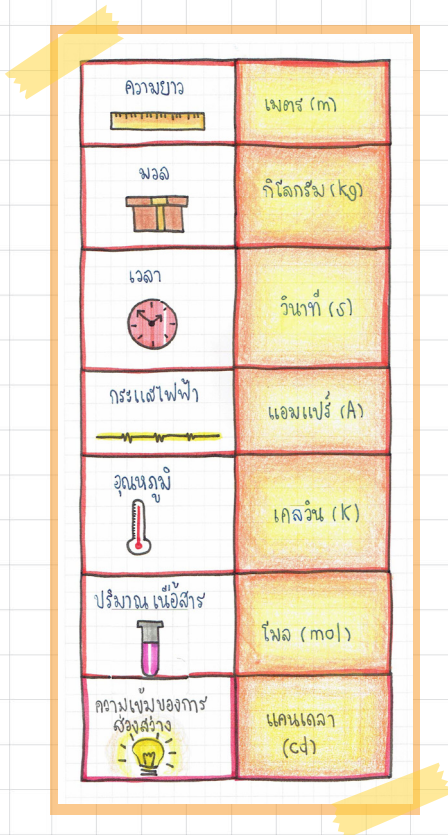 ความยาว
เมตร (m)
มวล
กิโลกรัม (kg)
เวลา
วินาที (s)
กระแสไฟฟ้า
แอมแปร์ (A)
อุณหภูมิ
เคลวิน (K)
ปริมาณเนื้อสาร
โมล (mol)
ความเข้มของการ
ส่องสว่าง
แคนเดลา
(cd)